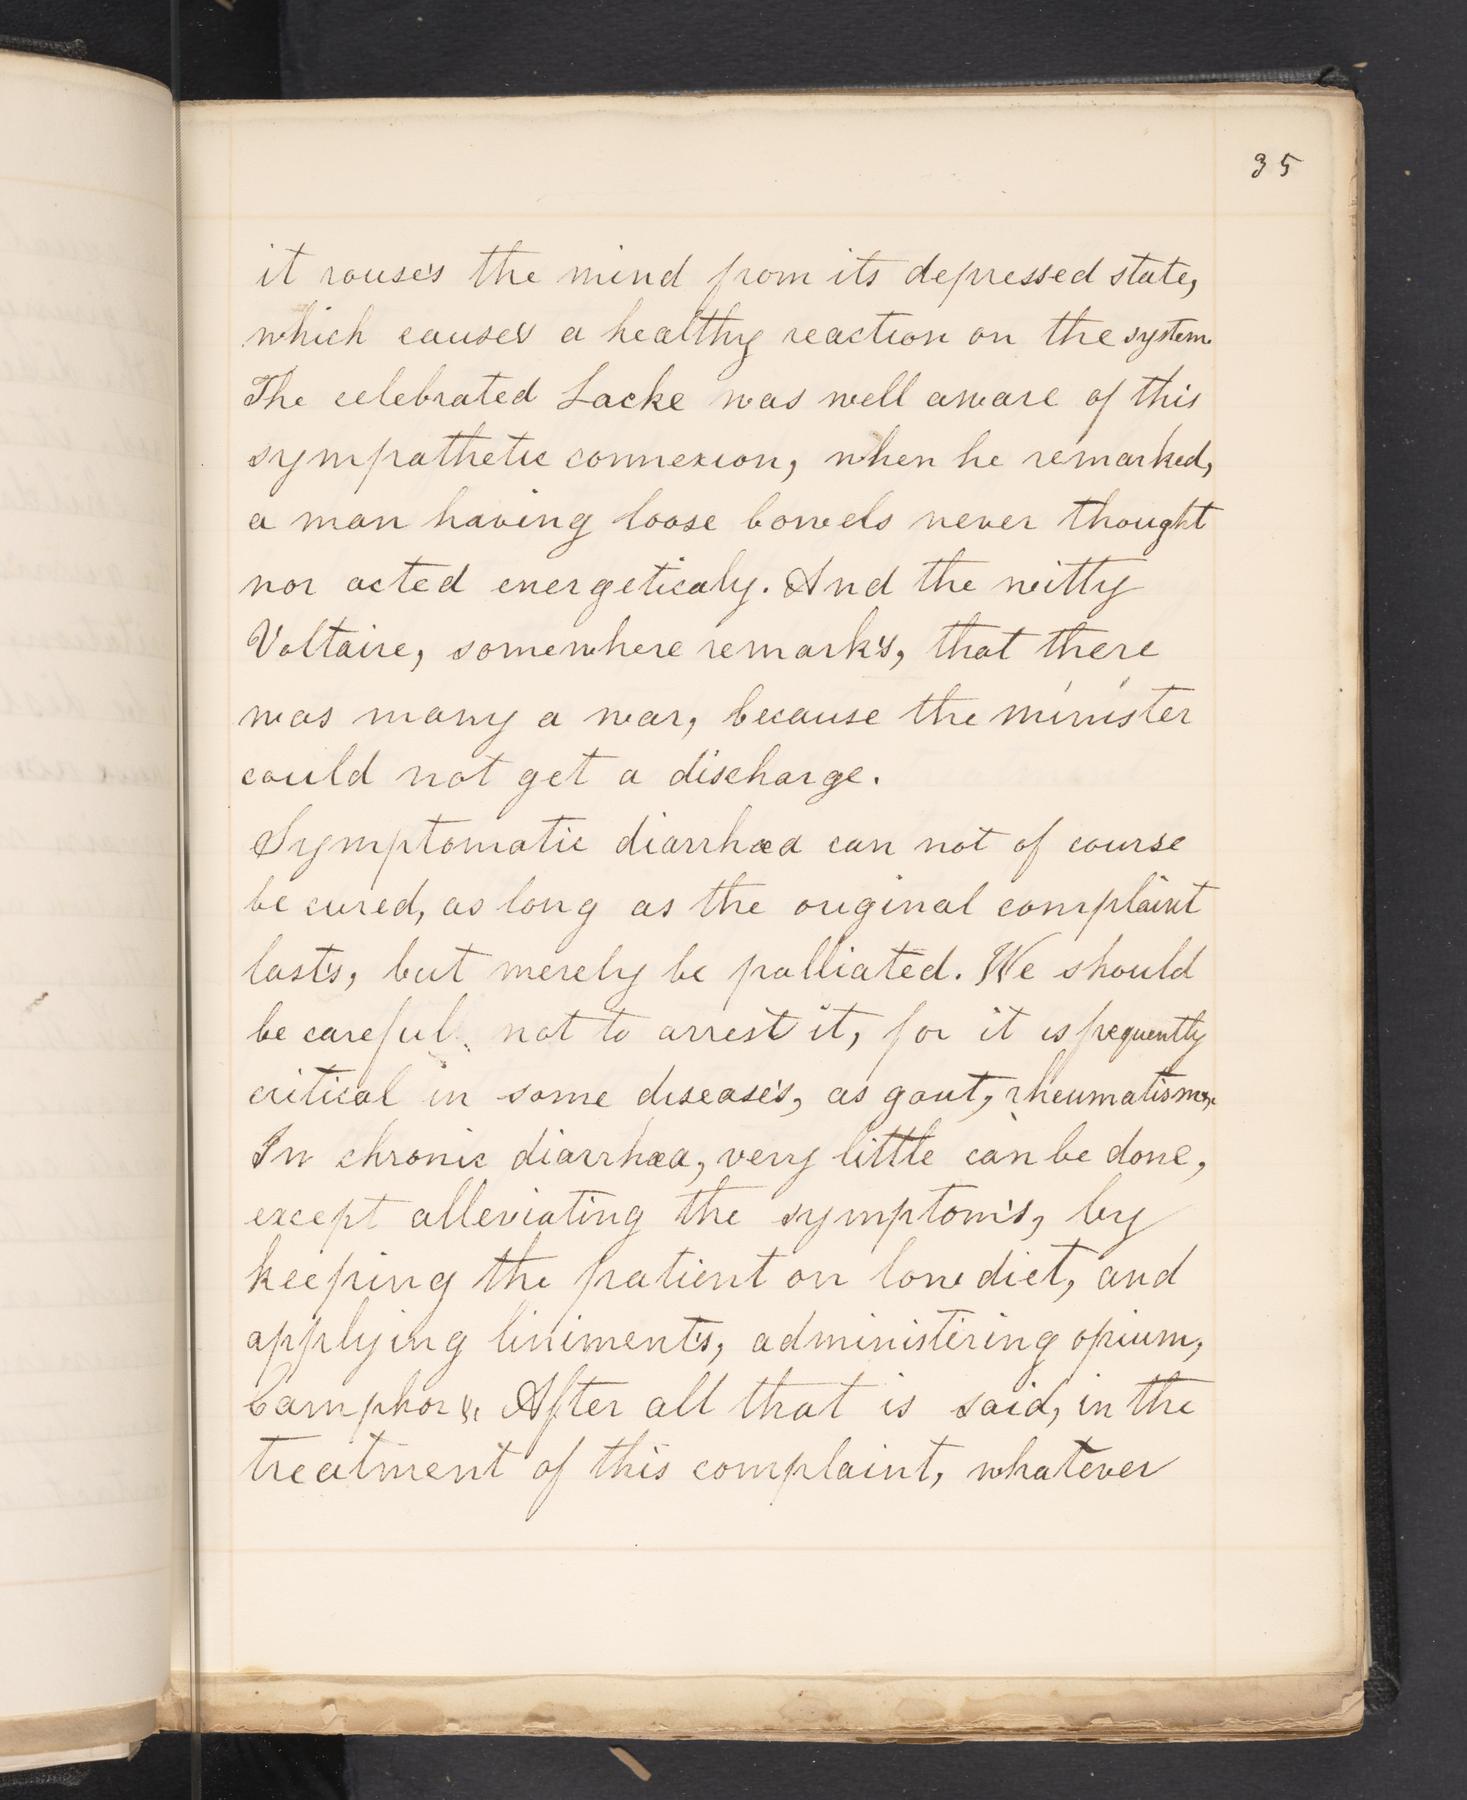 35
it rouses the mind from its depressed state,
which causes a healthy reaction on the system.
The celebrated Locke was well aware of this
sympathetic connexion, when he remarked,
a man having loose bowels never thought
nor acted energeticaly. And the witty
Voltaire, somewhere remarks, that there
was many a war, because the minister
could not get a discharge.
Symptomatic diarrhœa can not of course
be cured, as long as the original complaint
lasts, but merely be palliated. We should
be careful not to arrest it, for it is frequently
critical in some diseases, as gout, rheumatism,
In chronic diarrhœa, very little can be done,
except alleviating the symptoms, by
keeping the patient on low diet, and
applying liniments, administering opium,
Camphor &c After all that is said, in the
treatment of this complaint, whatever